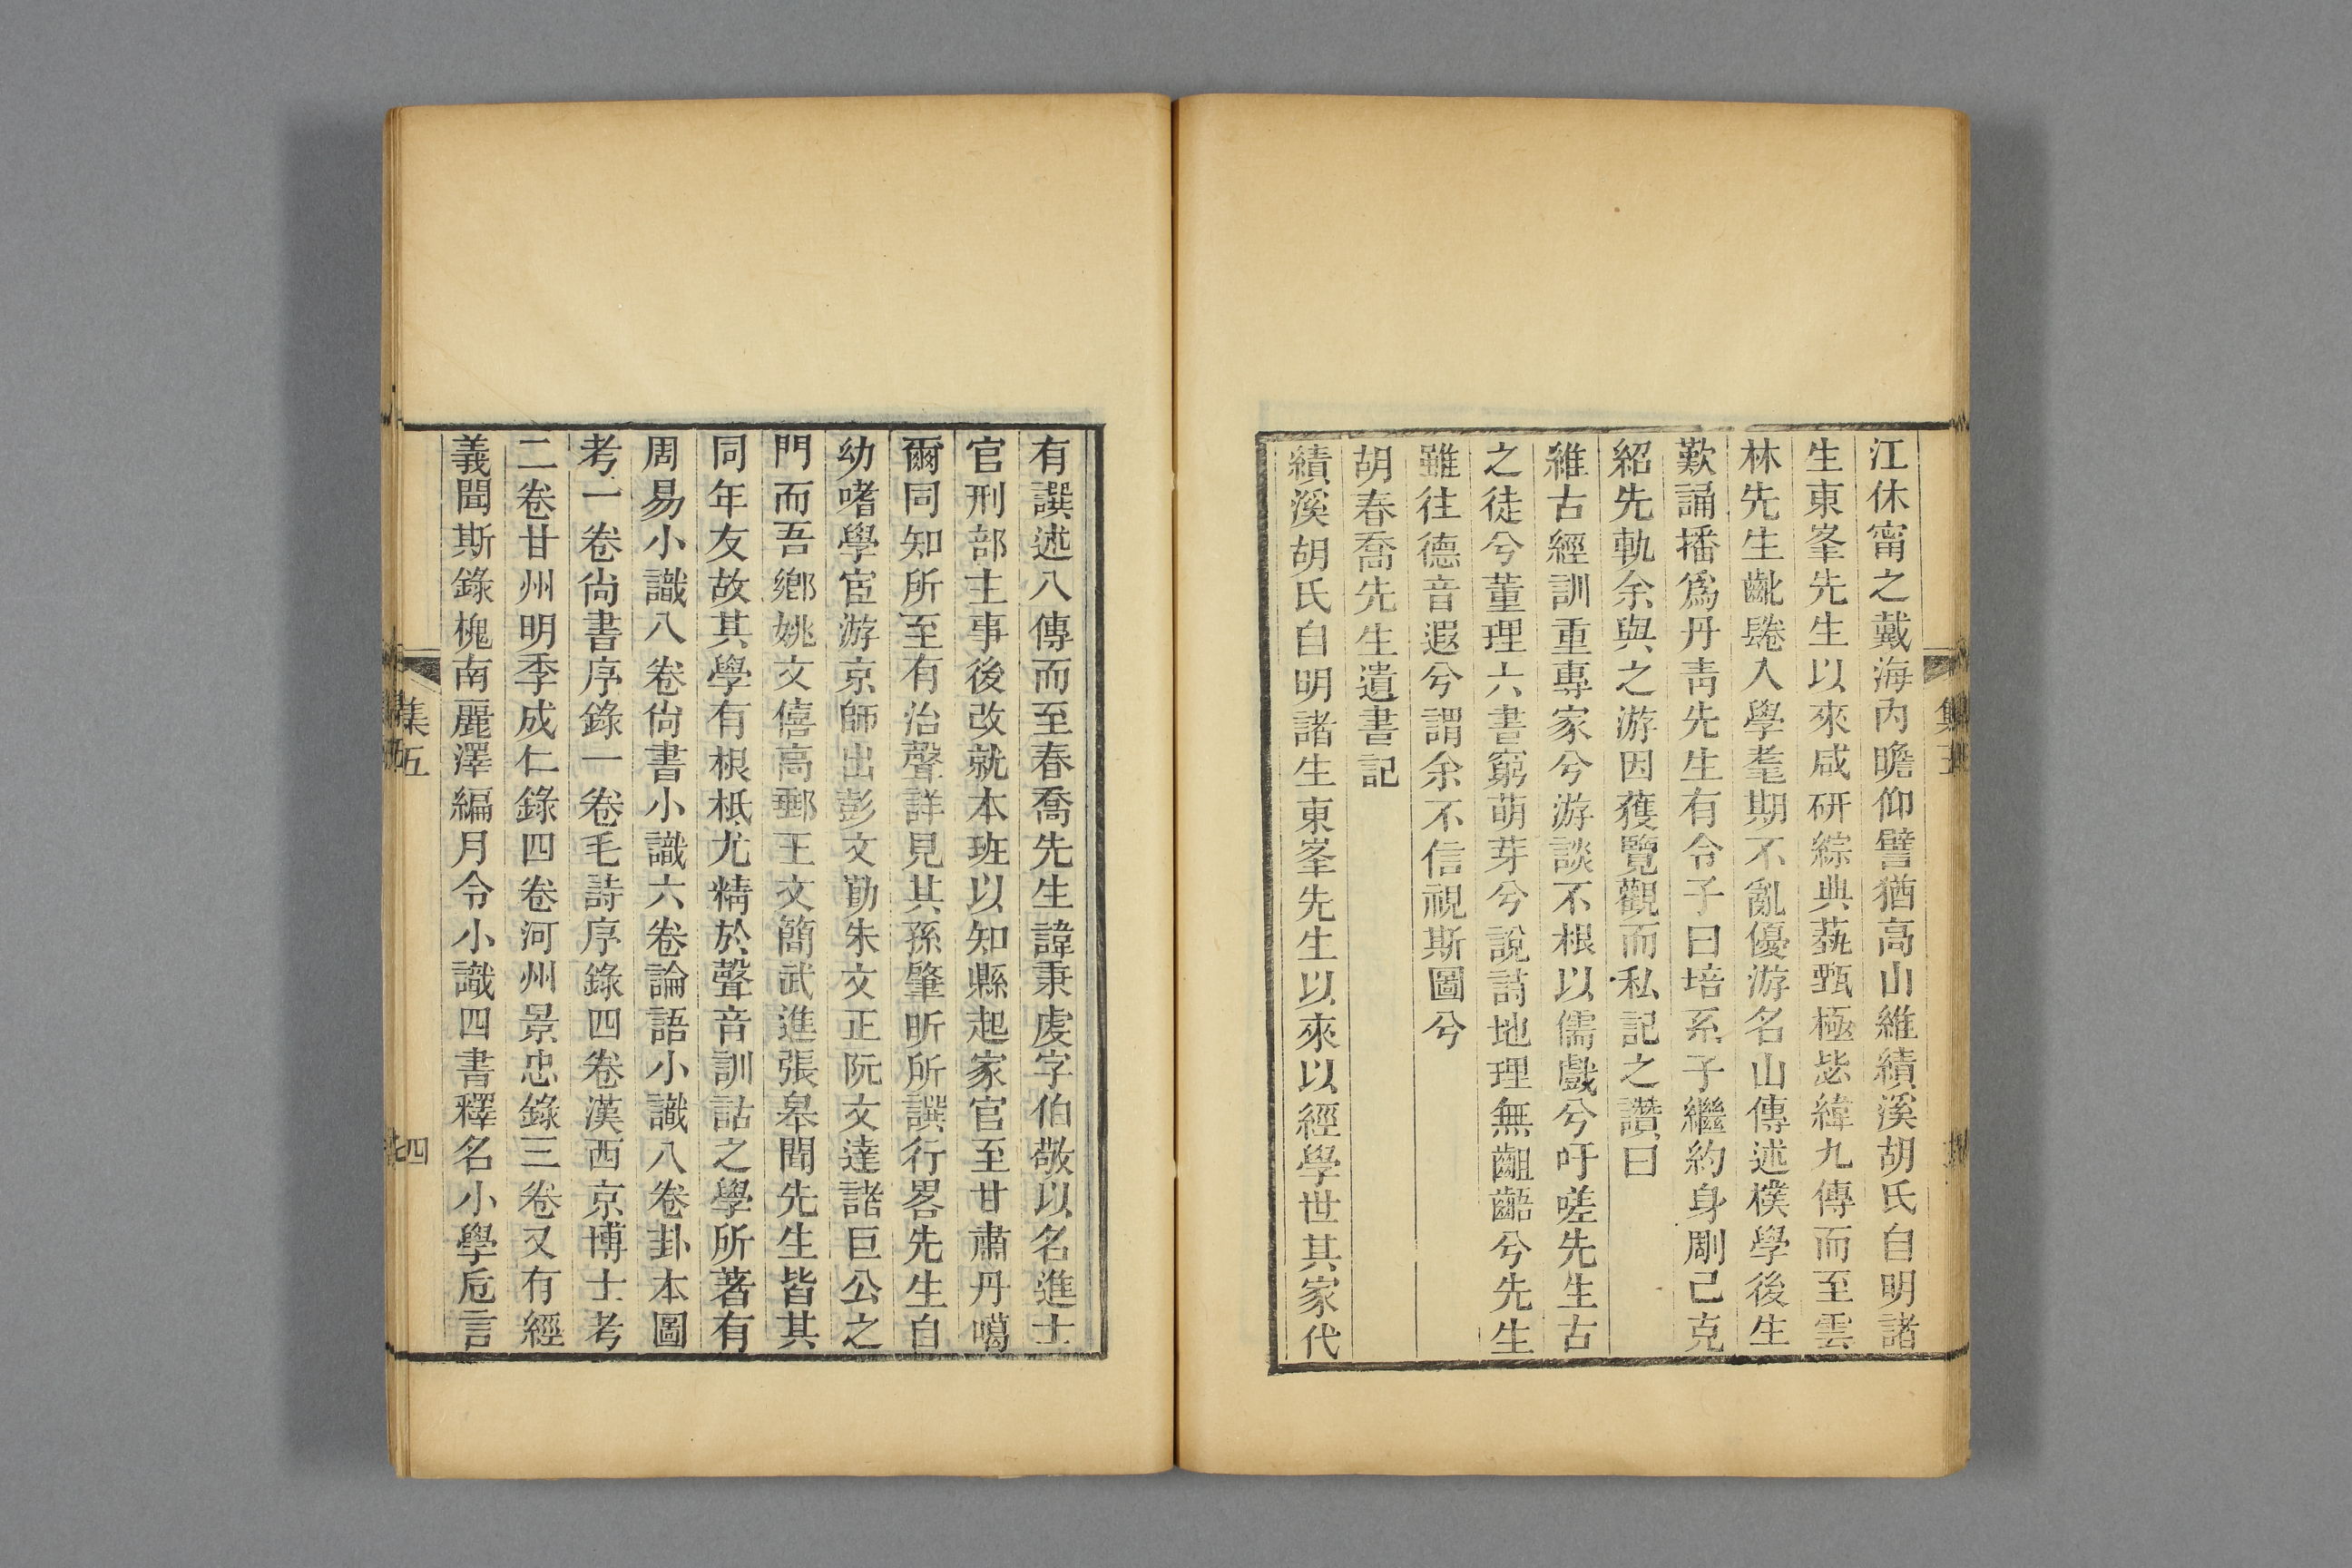 江休甯之戴海內瞻仰譬猶高山維績溪胡氏自明諸
生東峯先生以來咸研綜典蓺甄極毖緯九傳而至雲
林先生齔髫入學耄期不亂優游名山傳述樸學後生
歎誦播爲丹青先生有令子曰培系子繼約身剛己克
紹先軌余與之游因獲覽觀而私記之讚曰
維古經訓重專家兮游談不根以儒戲兮吁嗟先生古
之徒兮董理六書窮萌芽兮說詩地理無齟齬兮先生
雖往德音遐兮謂余不信視斯圖兮
胡春喬先生遺書記
績溪胡氏自明諸生東峯先生以來以經學世其家代
有譔述八傳而至春喬先生諱秉虔字伯敬以名進士
官刑部主事後改就本班以知縣起家官至甘肅丹噶
爾同知所至有治聲詳見其孫肇昕所譔行畧先生自
幼嗜學宦游京師出彭文勤朱文正阮文達諸巨公之
門而吾鄉姚文僖高郵王文簡武進張皋聞先生皆其
同年友故其學有根柢尤精於聲音訓詁之學所著有
周易小識八卷尙書小識六卷論語小識八卷卦本圖
考一卷尙書序錄一卷毛詩序錄四卷漢西京博士考
二卷甘州明季成仁錄四卷河州景忠錄三卷又有經
義聞斯錄槐南麗澤編月令小識四書釋名小學卮言
集五
四